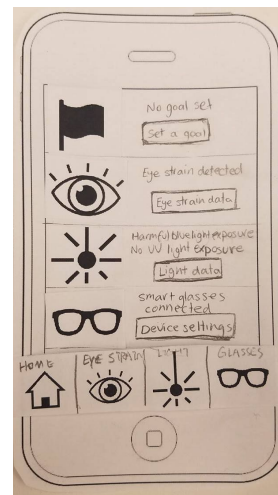 No goal set
Set a goal
Eye strain detected
Eye strain data
Harmful blue light exposure
No UV light exposure
Light data
smart glasses
connected
Device settings
HOME
EYE STRAIN
LIGHT
GLASSES